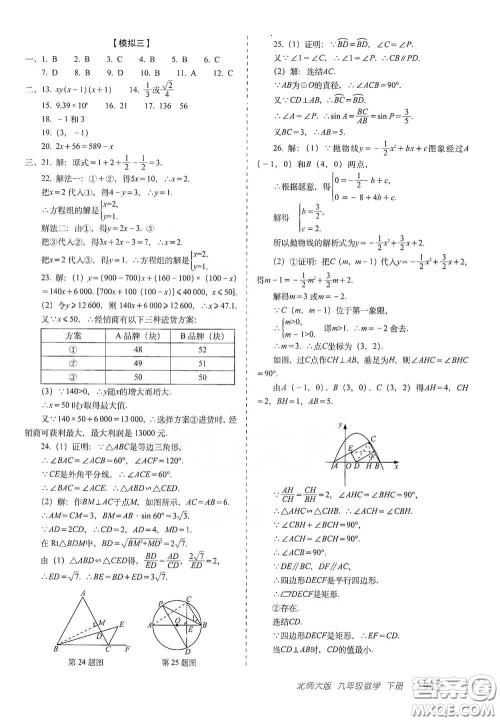 【模拟三】
一、1. B 2. B 3. C 4. B 5. B 6. B
7. D 8. D 9. B 10. A 11. D 12. C
二、13. xy(x-1)(x+1) 14. 1/3 或 √2/4
15. 9.39×10⁶ 16. 21 17. 136 56
18. -1和3
19. (3,1)
20. 2x+56=589-x
三、21. 解：原式=1+2+1/2-1/2=3.
22. 解法一：①+②，得5x=10，∴x=2.
把x=2代入①，得4-y=3，∴y=1.
∴方程组的解是{x=2, y=1.
解法二：由①，得y=2x-3. ③
把③代入②，得3x+2x-3=7，∴x=2.
把x=2代入③，得y=1.
∴方程组的解是{x=2, y=1.
23. 解：(1) y=(900-700)x+(160-100)×(100-x)
=140x+6 000. [700x+100(100-x)≤40 000, x≤50]
(2) 令y≥12 600，则140x+6 000≥12 600，∴x≥47.1.
又∵x≤50，∴经销商有以下三种进货方案：
方案 A品牌（块） B品牌（块）
① 48 52
② 49 51
③ 50 50
(3) ∵140>0，∴y随x的增大而增大.
∴x=50时y取得最大值.
又∵140×50+6 000=13 000，∴选择方案③进货时，经
销商可获利最大，最大利润是13000元.
24. (1) 证明：∵△ABC是等边三角形，
∴∠BAC=∠ACB=60°，∠ACF=120°.
∵CE是外角平分线，∴∠ACE=60°.
∴∠BAC=∠ACE.
又∵∠ADB=∠CDE，∴△ABD∽△CED.
(2) 解：作BM⊥AC于点M，如图所示，AC=AB=6.
∴AM=CM=3，BM=AB·sin 60°=3√3.
∵AD=2CD，∴CD=2，AD=4，MD=1.
在Rt△BDM中，BD=√(BM²+MD²)=2√7.
由(1)△ABD∽△CED得，BD/ED=AD/CD，2√7/ED=2，
∴ED=√7. ∴BE=BD+ED=3√7.
A
M
E
D
B
C
F
第24题图
D
C
A
O
B
P
第25题图
25. (1) 证明：∵BD=BD，∴∠C=∠P.
又∵∠1=∠C，∴∠1=∠P. ∴CB∥PD.
(2) 解：连结AC.
∵AB为⊙O的直径，∴∠ACB=90°.
又∵CD⊥AB，∴BC=BD.
∴∠A=∠P. ∴sin A=sin P. ∴sin A=BC/AB=sin P=3/5.
又∵BC=3，∴AB=5.
26. (1) 解：∵抛物线y=-1/2x²+bx+c图象经过A
(-1，0)和B(4，0)两点，
∴根据题意，得{0=-1/2-b+c, 0=-8+4b+c,
解得{b=3/2, c=2.
所以抛物线的解析式为y=-1/2x²+3/2x+2.
(2) ①证明：把C(m，m-1)代入y=-1/2x²+3/2x+2，
得m-1=-1/2m²+3/2m+2.
解得m=3或m=-2.
∵C(m，m-1)位于第一象限，
∴{m>0, m-1>0, 即m>1. ∴m=-2舍去.
∴m=3. ∴点C坐标为(3，2).
如图，过C点作CH⊥AB，垂足为H，则∠AHC=∠BHC
=90°.
由A(-1，0)、B(3，0)、C(3，2)得AH=4，CH
=2，BH=1，AB=5.
y
C
E
A
O
D
F
H
B
x
∵AH/CH=CH/BH=2，∠AHC=∠BHC=90°，
∴△AHC∽△CHB. ∴∠ACH=∠CBH.
∵∠CBH+∠BCH=90°，
∴∠ACH+∠BCH=90°.
∴∠ACB=90°.
∵DE∥BC，DF∥AC，
∴四边形DECF是平行四边形.
∴▱DECF是矩形.
②存在.
连结CD.
∵四边形DECF是矩形，
∴CD=EF.
北师大版 九年级数学 下册